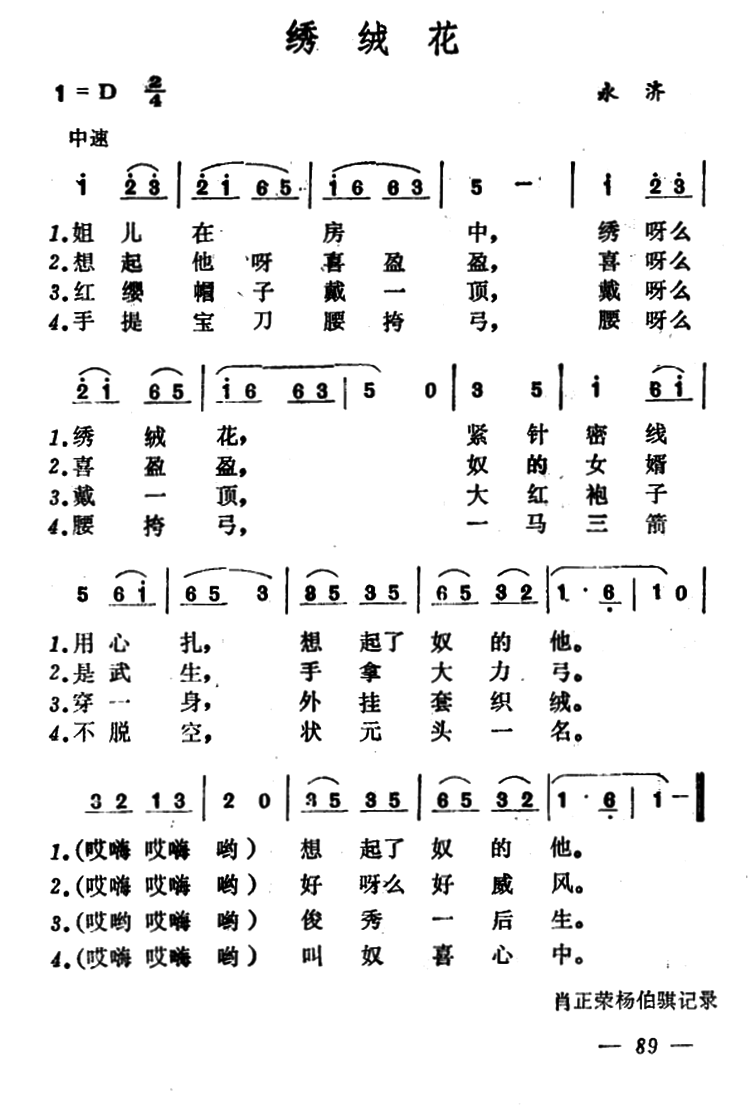 绣绒花
1=D 2/4 永济
中速
i 2̇3̇ | 2̇i 65 | i6 63 | 5 － | i 2̇3̇ |
1.姐儿在房中，绣呀么
2.想起他呀喜盈盈，喜呀么
3.红缨帽、子戴一顶，戴呀么
4.手提宝刀腰挎弓，腰呀么
2̇i 65 | i6 63 | 5 0 | 3 5 | i 6i |
1.绣绒花，紧针密线
2.喜盈盈，奴的女婿
3.戴一顶，大红袍子
4.腰挎弓，一马三箭
5 6i | 65 3 | 35 35 | 65 32 | 1· 6̣ | 10 |
1.用心扎，想起了奴的他。
2.是武生，手拿大力弓。
3.穿一身，外挂套织绒。
4.不脱空，状元头一名。
32 13 | 2 0 | 35 35 | 65 32 | 1· 6̣ | 1－ ‖
1.(哎嗨哎嗨哟)想起了奴的他。
2.(哎嗨哎嗨哟)好呀么好威风。
3.(哎哟哎嗨哟)俊秀一后生。
4.(哎嗨哎嗨哟)叫奴喜心中。
肖正荣杨伯骐记录
— 89 —